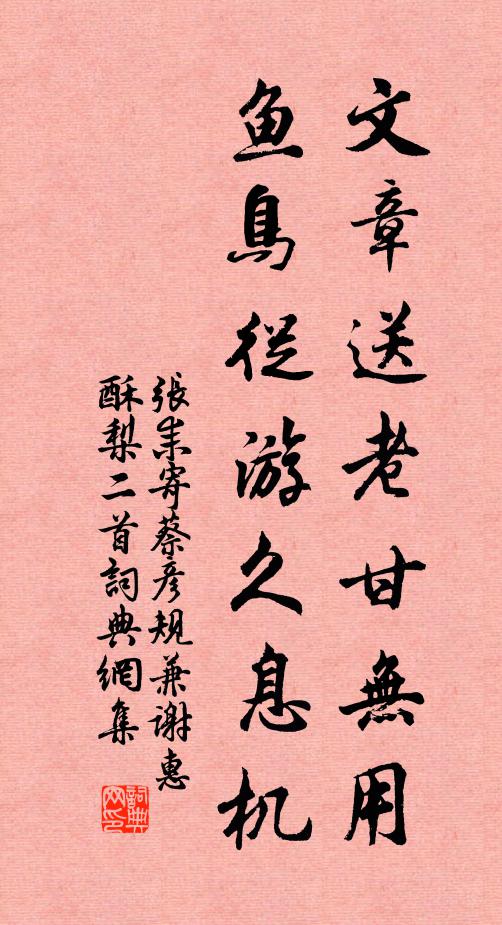 文章送老甘無用
鱼鳥從游久息机
張耒寄蔡彦規兼謝惠
酥梨二首詞典網集
詞典网印